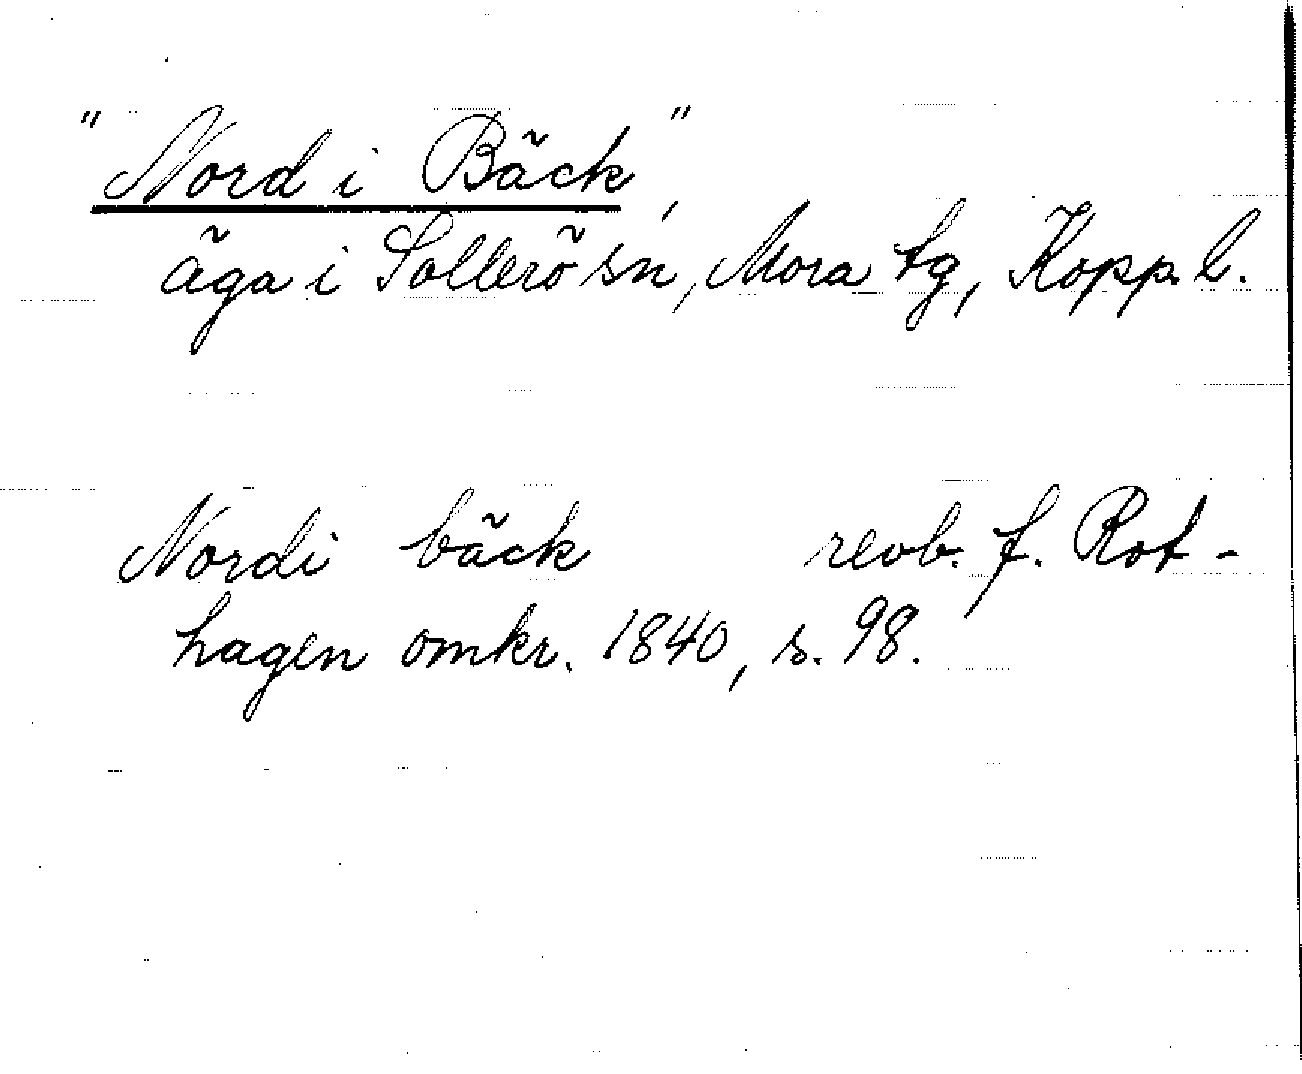 "Nord i Bäck",
äga i Sollerö sn, Mora tg, Kopp. l.
Nordi bäck revb. f. Rot-
hagen omkr. 1840, s. 98.